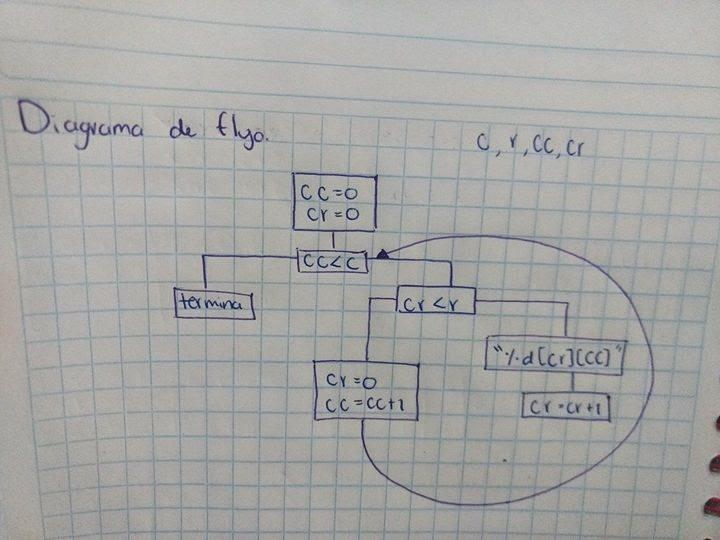 Diagrama de flujo.
c, r, cc, cr
cc=0
cr=0
cc<c
termina
cr<r
"%d[cr][cc]"
cr=0
cc=cc+1
cr=cr+1